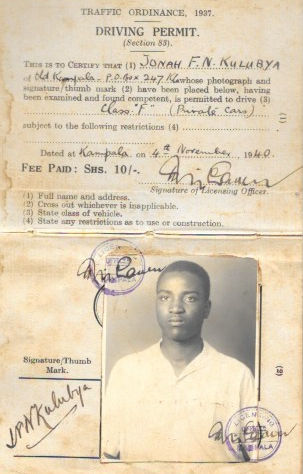 TRAFFIC ORDINANCE, 1937.
DRIVING PERMIT.
(Section 33).
THIS IS TO CERTIFY THAT (1) JONAH F.N. KULUBYA
of Old Kampala - P.O. Box 247 K'la whose photograph and
signature/thumb mark (2) have been placed below, having
been examined and found competent, is permitted to drive (3)
Class "F" (Private Cars)
subject to the following restrictions (4)
Dated at Kampala on 4th November, 1940.
FEE PAID: SHS. 10/-.
Signature of Licensing Officer.
(1) Full name and address.
(2) Cross out whichever is inapplicable.
(3) State class of vehicle.
(4) State any restrictions as to use or construction.
Signature/Thumb
Mark.
Kulubya
LICENSING